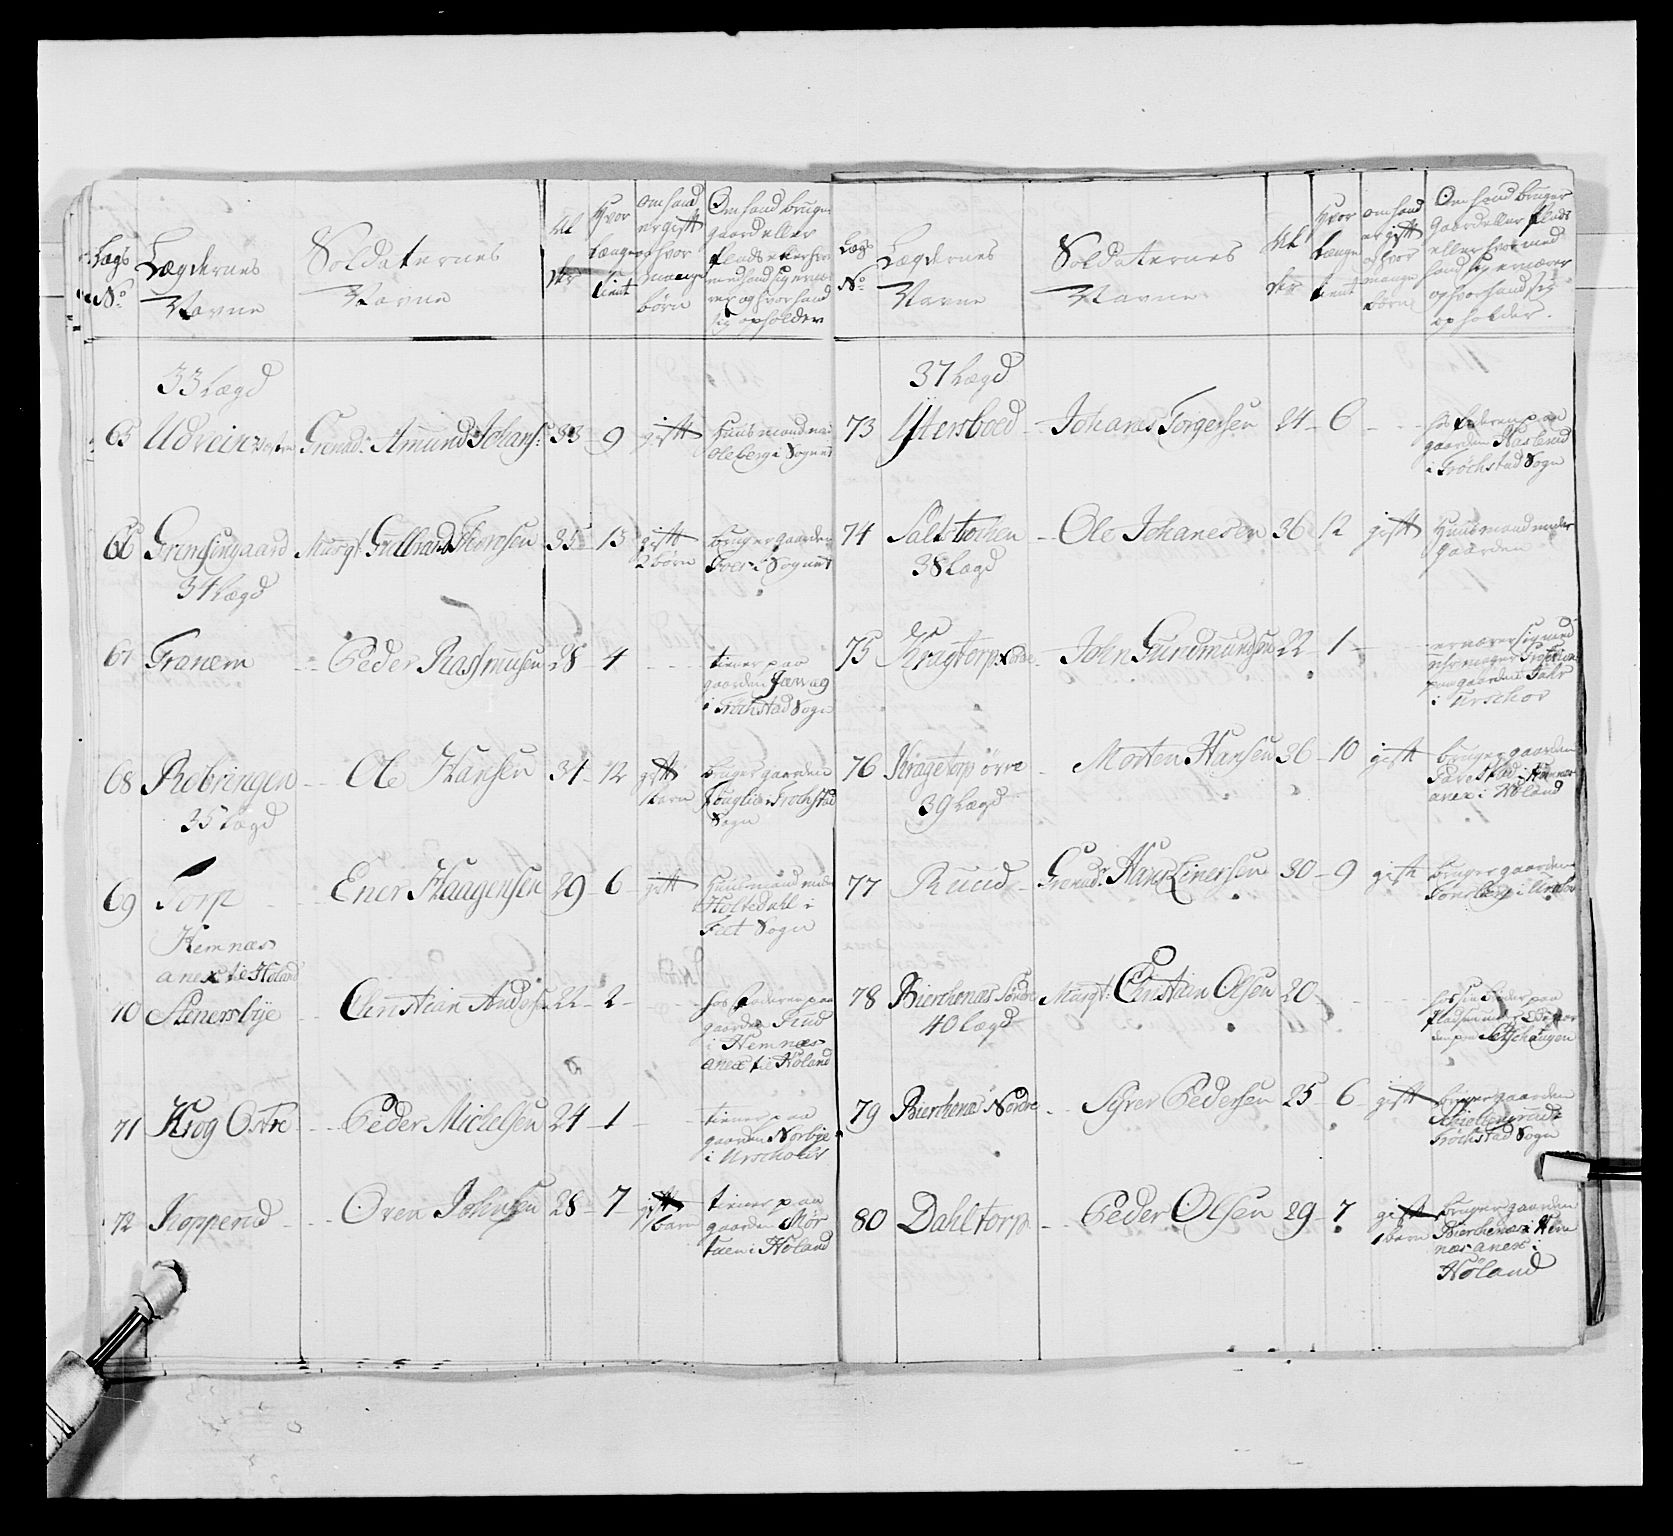 Lægs No. Lægdernes Navne Soldaternes Navne Alder Hvor længe tient om hand er gift og hvor mange børn Om hand bruger gaard eller plads eller hvormed hand sig ernærer og hvor hand sig opholder
33 Lægd
65 Udvein Grenad: Amund Johans: 33 - 9 gift Huusmand
Oleberg i Sognet
66 Grensingaard Mungt: Gulbrand Thorosen 35 - 15 gift 2 børn bruger gaarden
i Sognet
34 Lægd
67 Granem - Peder Rasmusen 28 - 4 - - tiener paa
gaarden
i Trøchstad Sogn
68 Robringen - Ole Hansen 34 - 12 gift 1 barn bruger gaarden
Trochstad
Sogn
35 Lægd
69 Torp - Ener Haagensen 29 - 6 gift Huusmand under
Holtedahl i
Feet Sogn
Hemnæs
anex til Høland
70 Stenersbye Christian Anders: 22 - 2 - hos faderen paa
gaarden
i Hemnæs
anex til Høland
71 Krog Østre - - Peder Michelsen 24 - 1 - tiener paa
gaarden Norbye
i Urschoug
72 Kopperud - - Oven Johnsen 28 - 7 gift 1 barn tiener paa
gaarden Mør
tuen i Høland
Lægs No. Lægdernes Navne Soldaternes Navne Alder Hvor længe tient om hand er gift og hvor mange børn Om hand bruger gaard eller plads eller hvormed hand sig ernærer og hvor hand sig opholder.
37 Lægd
73 Ytersboed - Johanes Torgersen 24 - 6 - - hos faderen paa
gaarden Haslerud
i Trøchstad Sogn
74 Saltstochen - Ole Johanesen 36 - 12 gift Huusmand under
gaarden
38 Lægd
75 Kragtorp Nordre - John Gundmundsen 22 - 1 - ernærer sig med
paa gaarden
i Urschov
76 Kragetorp ørre - Morten Hansen 36 - 10 gift bruger gaarden
anex i Høland
39 Lægd
77 Ruud - Grenad: Hans Einersen 30 - 9 gift bruger gaarden
78 Bierchenæs Søndre Mungt: Christian Olsen 20 - - hos sin fader paa
pladsen under
40 Lægd
79 Bierchenæs Nordre - - Syver Pedersen 25 - 6 - gift bruger gaarden
Trøchstad Sogn
80 Dahltorp - Peder Olsen 29 - 7 gift 1 barn bruger gaarden
Bierchenæs i Hem
næs anex i
Høland